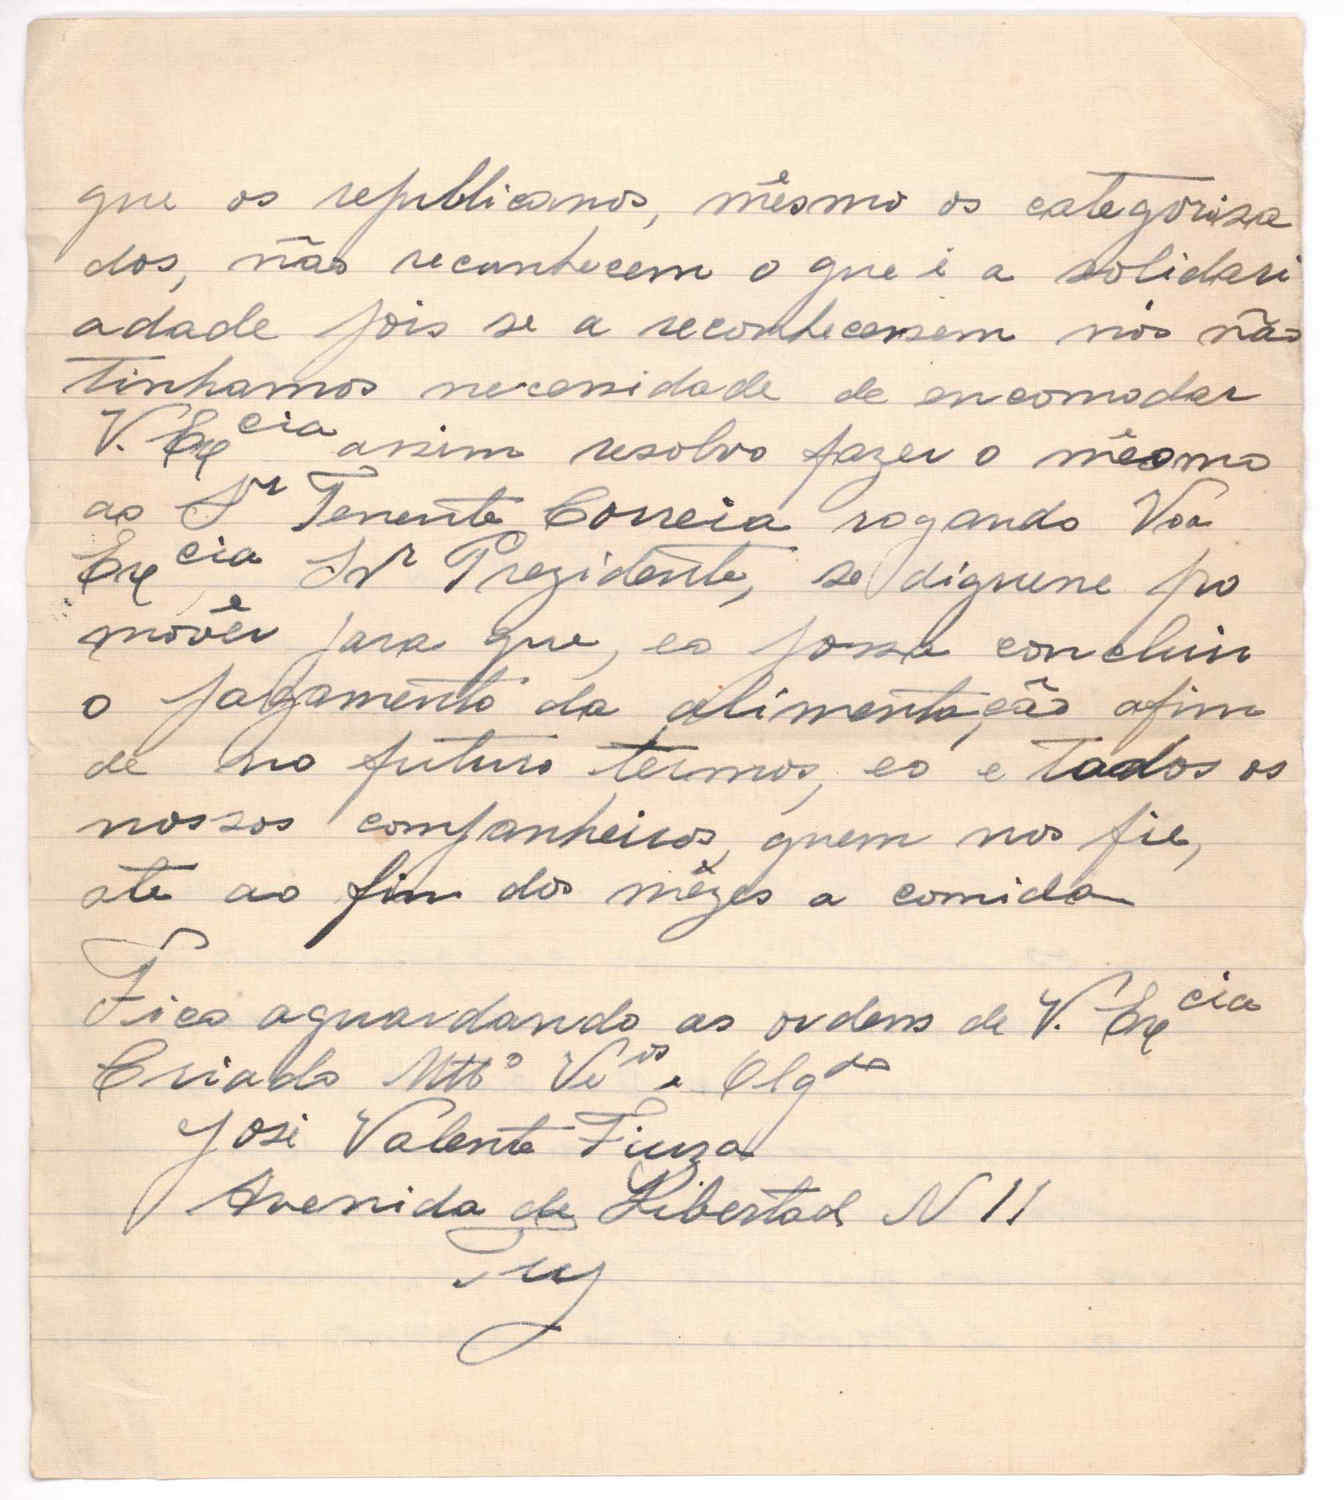 que os republicanos, mêsmo os categorisa
dos, não reconhecem o que é a solidari
adade pois se a reconhecensem nós não
tinhamos necessidade de encomodar
V. Excia assim resolvo fazer o mêsmo
ao Snr Tenente Correia rogando Voa
Excia Snr Prezidente, se digne pro
movêr para que, eo possa concluir
o pagamento da alimentação, afim
de no futuro termos, eo e todos os
nossos companheiros, quem nos fie,
ate ao fim dos mêzes a comida
Fico aguardando as ordens de V. Excia
Criado Mtto Veor e Obgdo
José Valente Fiuza
Avenida de Libertad N 11
Tuy